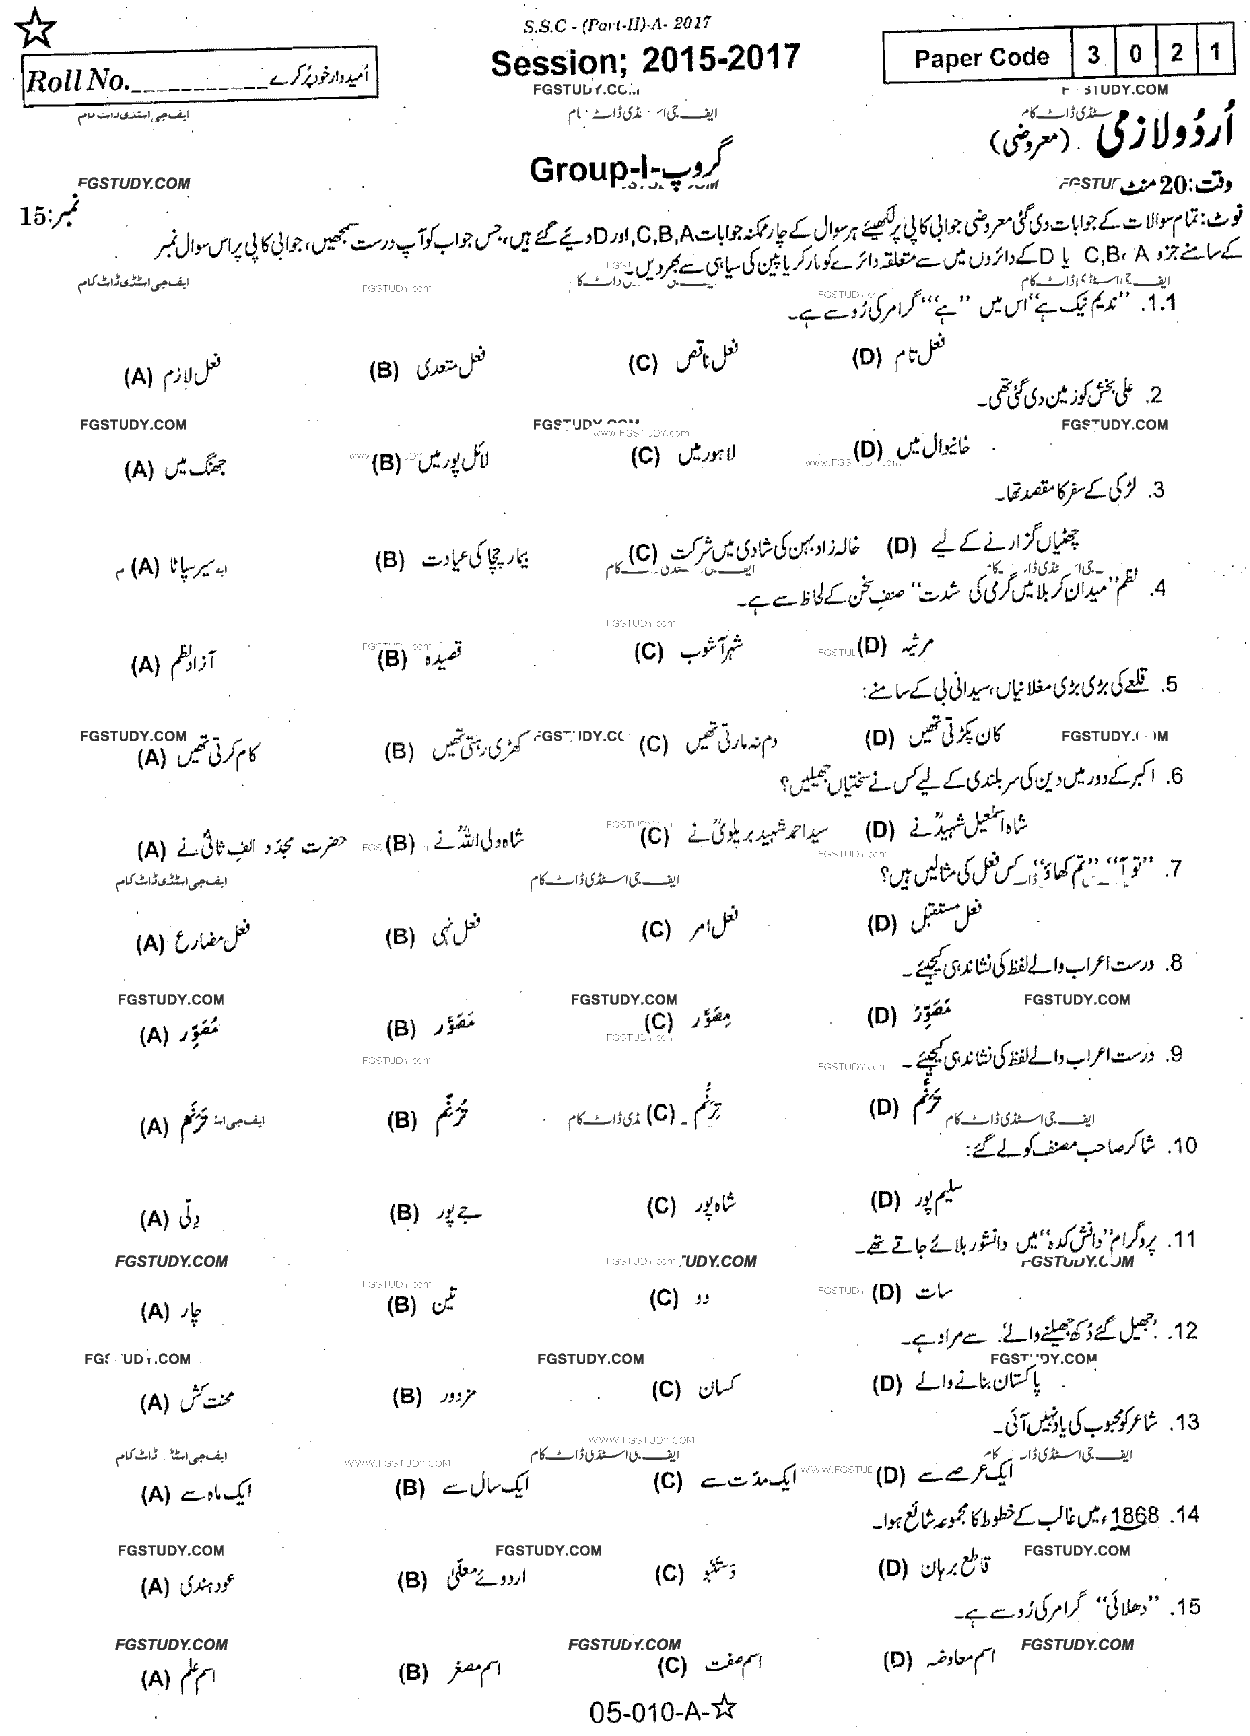 S.S.C - (Part-II)-A- 2017
Session; 2015-2017
Paper Code 3 0 2 1
Roll No.____________ امیدوار خود پُر کرے
FGSTUDY.COM
اُردو لازمی (معروضی)
Group-I-گروپ
وقت: 20 منٹ
نمبر: 15
نوٹ: تمام سوالات کے جوابات دی گئی معروضی جوابی کاپی پر لکھیئے ہر سوال کے چار ممکنہ جوابات C,B,A, اور D دیئے گئے ہیں، جس جواب کو آپ درست سمجھیں، جوابی کاپی پر اس سوال نمبر
کے سامنے جزو C,B، A یا D کے دائروں میں سے متعلقہ دائرے کو مارکر یا پین کی سیاہی سے بھر دیں۔
1.1. "ندیم نیک ہے" اس میں "ہے" گرامر کی رُو سے ہے۔
(A) فعل لازم (B) فعل متعدی (C) فعل ناقص (D) فعل تام
2. علی بخش کو زمین دی گئی تھی۔
(A) جھنگ میں (B) لائل پور میں (C) لاہور میں (D) خانیوال میں
3. لڑکی کے سفر کا مقصد تھا۔
(A) سیر سپاٹا (B) بیمار چچا کی عیادت (C) خالہ زاد بہن کی شادی میں شرکت (D) چھٹیاں گزارنے کے لیے
4. نظم "میدان کربلا میں گرمی کی شدت" صنفِ سخن کے لحاظ سے ہے۔
(A) آزاد نظم (B) قصیدہ (C) شہر آشوب (D) مرثیہ
5. قلعے کی بڑی بڑی مغلانیاں، سیدانی بی کے سامنے:
(A) کام کرتی تھیں (B) کھڑی رہتی تھیں (C) دم نہ مارتی تھیں (D) کان پکڑتی تھیں
6. اکبر کے دور میں دین کی سربلندی کے لیے کس نے سختیاں جھیلیں؟
(A) حضرت مجدّد الف ثانیؒ نے (B) شاہ ولی اللہؒ نے (C) سید احمد شہید بریلویؒ نے (D) شاہ اسمٰعیل شہیدؒ نے
7. "تو آ" "تم کھاؤ" کس فعل کی مثالیں ہیں؟
(A) فعل مضارع (B) فعل نہی (C) فعل امر (D) فعل مستقبل
8. درست اعراب والے لفظ کی نشاندہی کیجئے۔
(A) مُصَوِّر (B) مَصَوَّر (C) مِصَوَّر (D) مَصَوِّرُ
9. درست اعراب والے لفظ کی نشاندہی کیجئے۔
(A) (B) (C) (D)
10. شاکر صاحب مصنف کو لے گئے:
(A) دِلّی (B) جے پور (C) شاہ پور (D) سلیم پور
11. پروگرام "دانش کدہ" میں دانشور بلائے جاتے تھے۔
(A) چار (B) تین (C) دو (D) سات
12. جھیل گئے دُکھ جھیلنے والے سے مراد ہے۔
(A) محنت کش (B) مزدور (C) کسان (D) پاکستان بنانے والے
13. شاعر کو محبوب کی یاد نہیں آئی۔
(A) ایک ماہ سے (B) ایک سال سے (C) ایک مدّت سے (D) ایک عرصے سے
14. 1868ء میں غالب کے خطوط کا مجموعہ شائع ہوا۔
(A) عود ہندی (B) اردوئے معلّیٰ (C) دستنبو (D) قاطع برہان
15. "دھلائی" گرامر کی رُو سے ہے۔
(A) اسم علم (B) اسم مصغر (C) اسم صفت (D) اسم معاوضہ
05-010-A-☆